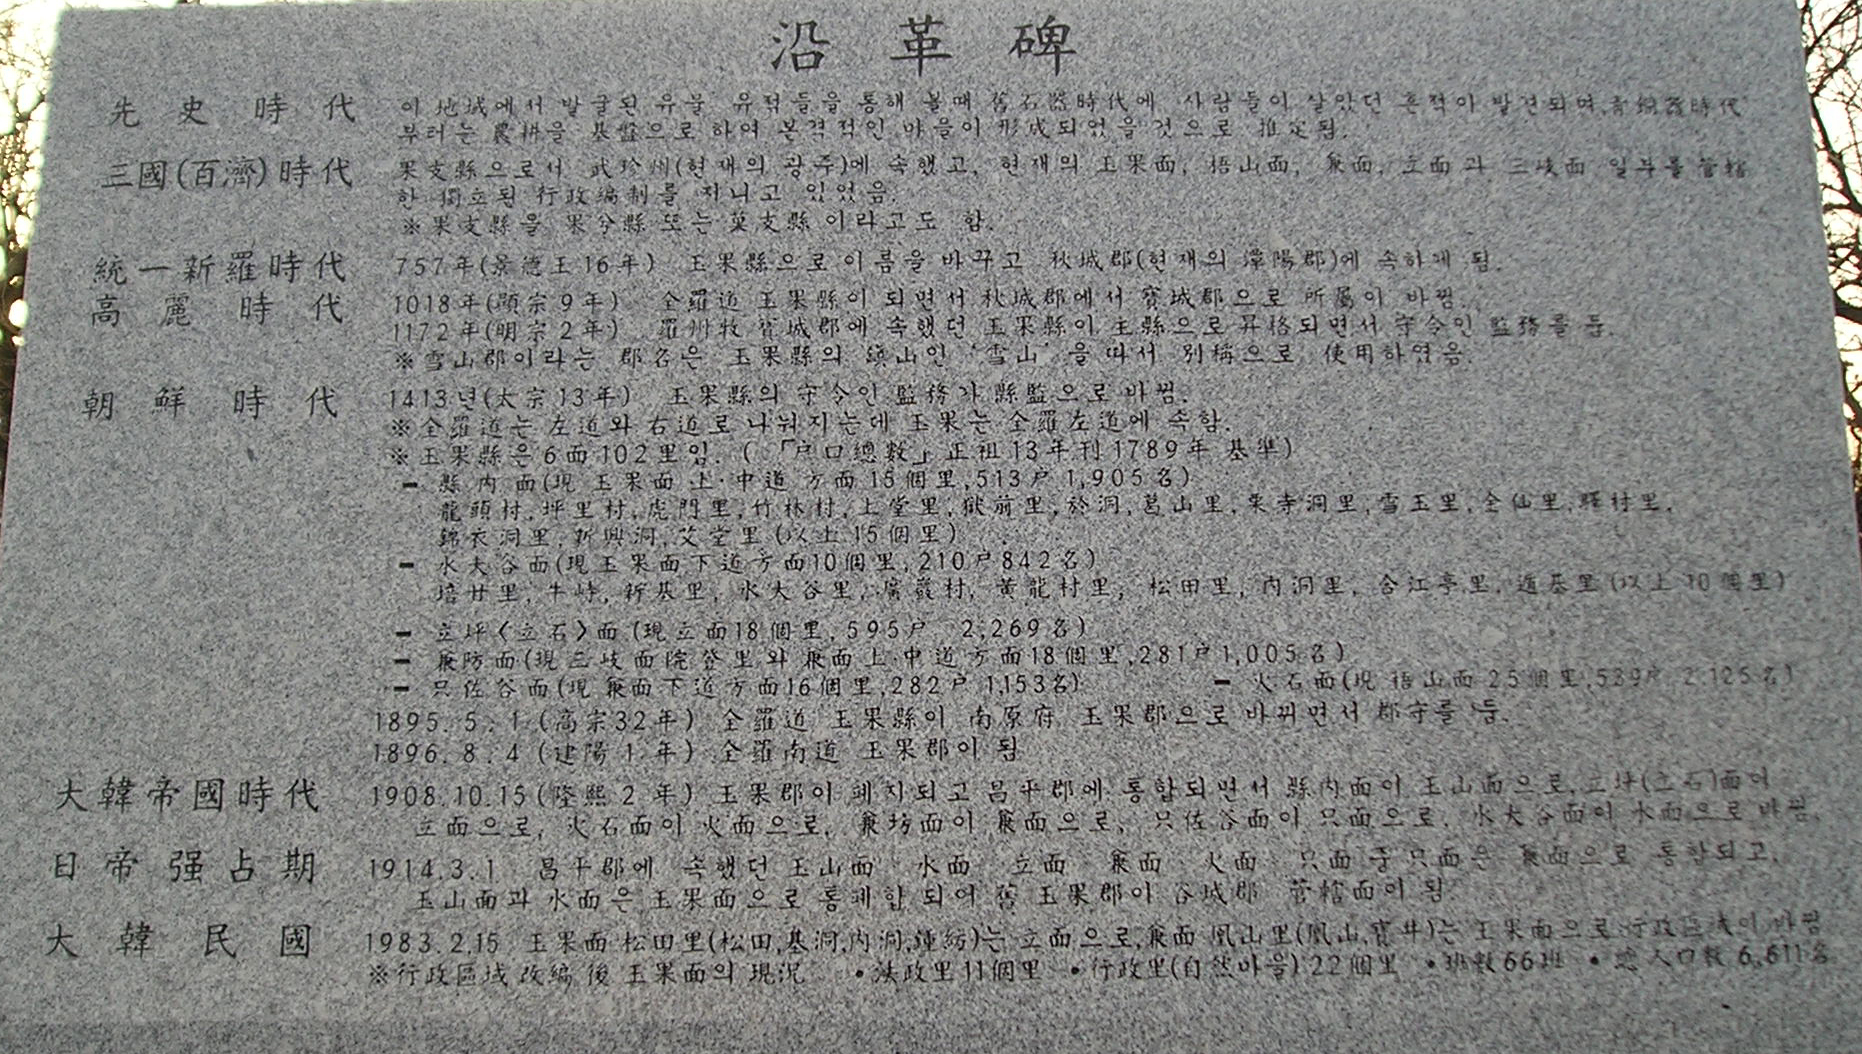 沿革碑
先史時代 이 地域에서 발굴된 유물 유적들을 통해 볼때 舊石器時代에 사람들이 살았던 흔적이 발견되며, 青銅器時代
부터는 農耕을 基盤으로 하여 본격적인 마을이 形成되었을 것으로 推定됨.
三國(百濟)時代 果支縣으로서 武珍州(현재의 광주)에 속했고, 현재의 玉果面, 梧山面, 兼面, 立面과 三岐面 일부를 管轄
한 獨立된 行政編制를 지니고 있었음.
※果支縣을 果兮縣 또는 菓支縣이라고도 함.
統一新羅時代 757年(景德王16年) 玉果縣으로 이름을 바꾸고 秋城郡(현재의 潭陽郡)에 속하게 됨.
高麗時代 1018年(顯宗9年) 全羅道 玉果縣이 되면서 秋城郡에서 寶城郡으로 所屬이 바뀜.
1172年(明宗2年) 羅州牧 寶城郡에 속했던 玉果縣이 主縣으로 昇格되면서 守令인 監務를 둠.
※雪山郡이라는 郡名은 玉果縣의 鎭山인 '雪山'을 따서 別稱으로 使用하였음.
朝鮮時代 1413년(太宗13年) 玉果縣의 守令인 監務가 縣監으로 바뀜.
※全羅道는 左道와 右道로 나눠지는데 玉果는 全羅左道에 속함.
※玉果縣은 6面102里임. (「戶口總數」正祖13年刊1789年 基準)
- 縣內面(現 玉果面 上·中道 方面 15個里, 513戶 1,905名)
龍頭村, 坪里村, 虎門里, 竹林村, 上堂里, 獄前里, 於洞, 葛山里, 果寺洞里, 雪玉里, 全仙里, 驛村里,
錦衣洞里, 新興洞, 艾堂里 (以上 15個里)
- 水大谷面(現玉果面下道方面10個里, 210戶842名)
培甘里, 牛峙, 新基里, 水大谷里, 村, 黃龍村里, 松田里, 內洞里, 合江亭里, 道基里(以上 10個里)
- 立坪〈立石〉面(現立面18個里, 595戶 2,269名)
- 兼防面(現三岐面院登里와 兼面上·中道方面18個里, 281戶1,005名)
- 只佐谷面(現兼面下道方面16個里, 282戶 1,153名) - 火石面(現 梧山面 25個里, 539戶 2,125名)
1895. 5. 1 (高宗32年) 全羅道 玉果縣이 南原府 玉果郡으로 바뀌면서 郡守를 둠.
1896. 8. 4 (建陽1年) 全羅南道 玉果郡이 됨
大韓帝國時代 1908.10.15(隆熙2年) 玉果郡이 폐지되고 昌平郡에 통합되면서 縣內面이 玉山面으로, 立坪(立石)面이
立面으로, 火石面이 火面으로, 兼坊面이 兼面으로, 只佐谷面이 只面으로, 水大谷面이 水面으로 바뀜.
日帝强占期 1914.3.1 昌平郡에 속했던 玉山面 水面 立面 兼面 火面 只面 중 只面은 兼面으로 통합되고,
玉山面과 水面은 玉果面으로 통폐합 되어 舊 玉果郡이 谷城郡 管轄面이 됨
大韓民國 1983.2.15 玉果面 松田里(松田,基洞,內洞,鍾紡)는 立面으로, 兼面 凰山里(凰山,寶井)는 玉果面으로 行政區域이 바뀜
※行政區域 改編 後 玉果面의 現況 •法政里11個里 •行政里(自然마을)22個里 •班數66班 •總人口數 6,611名